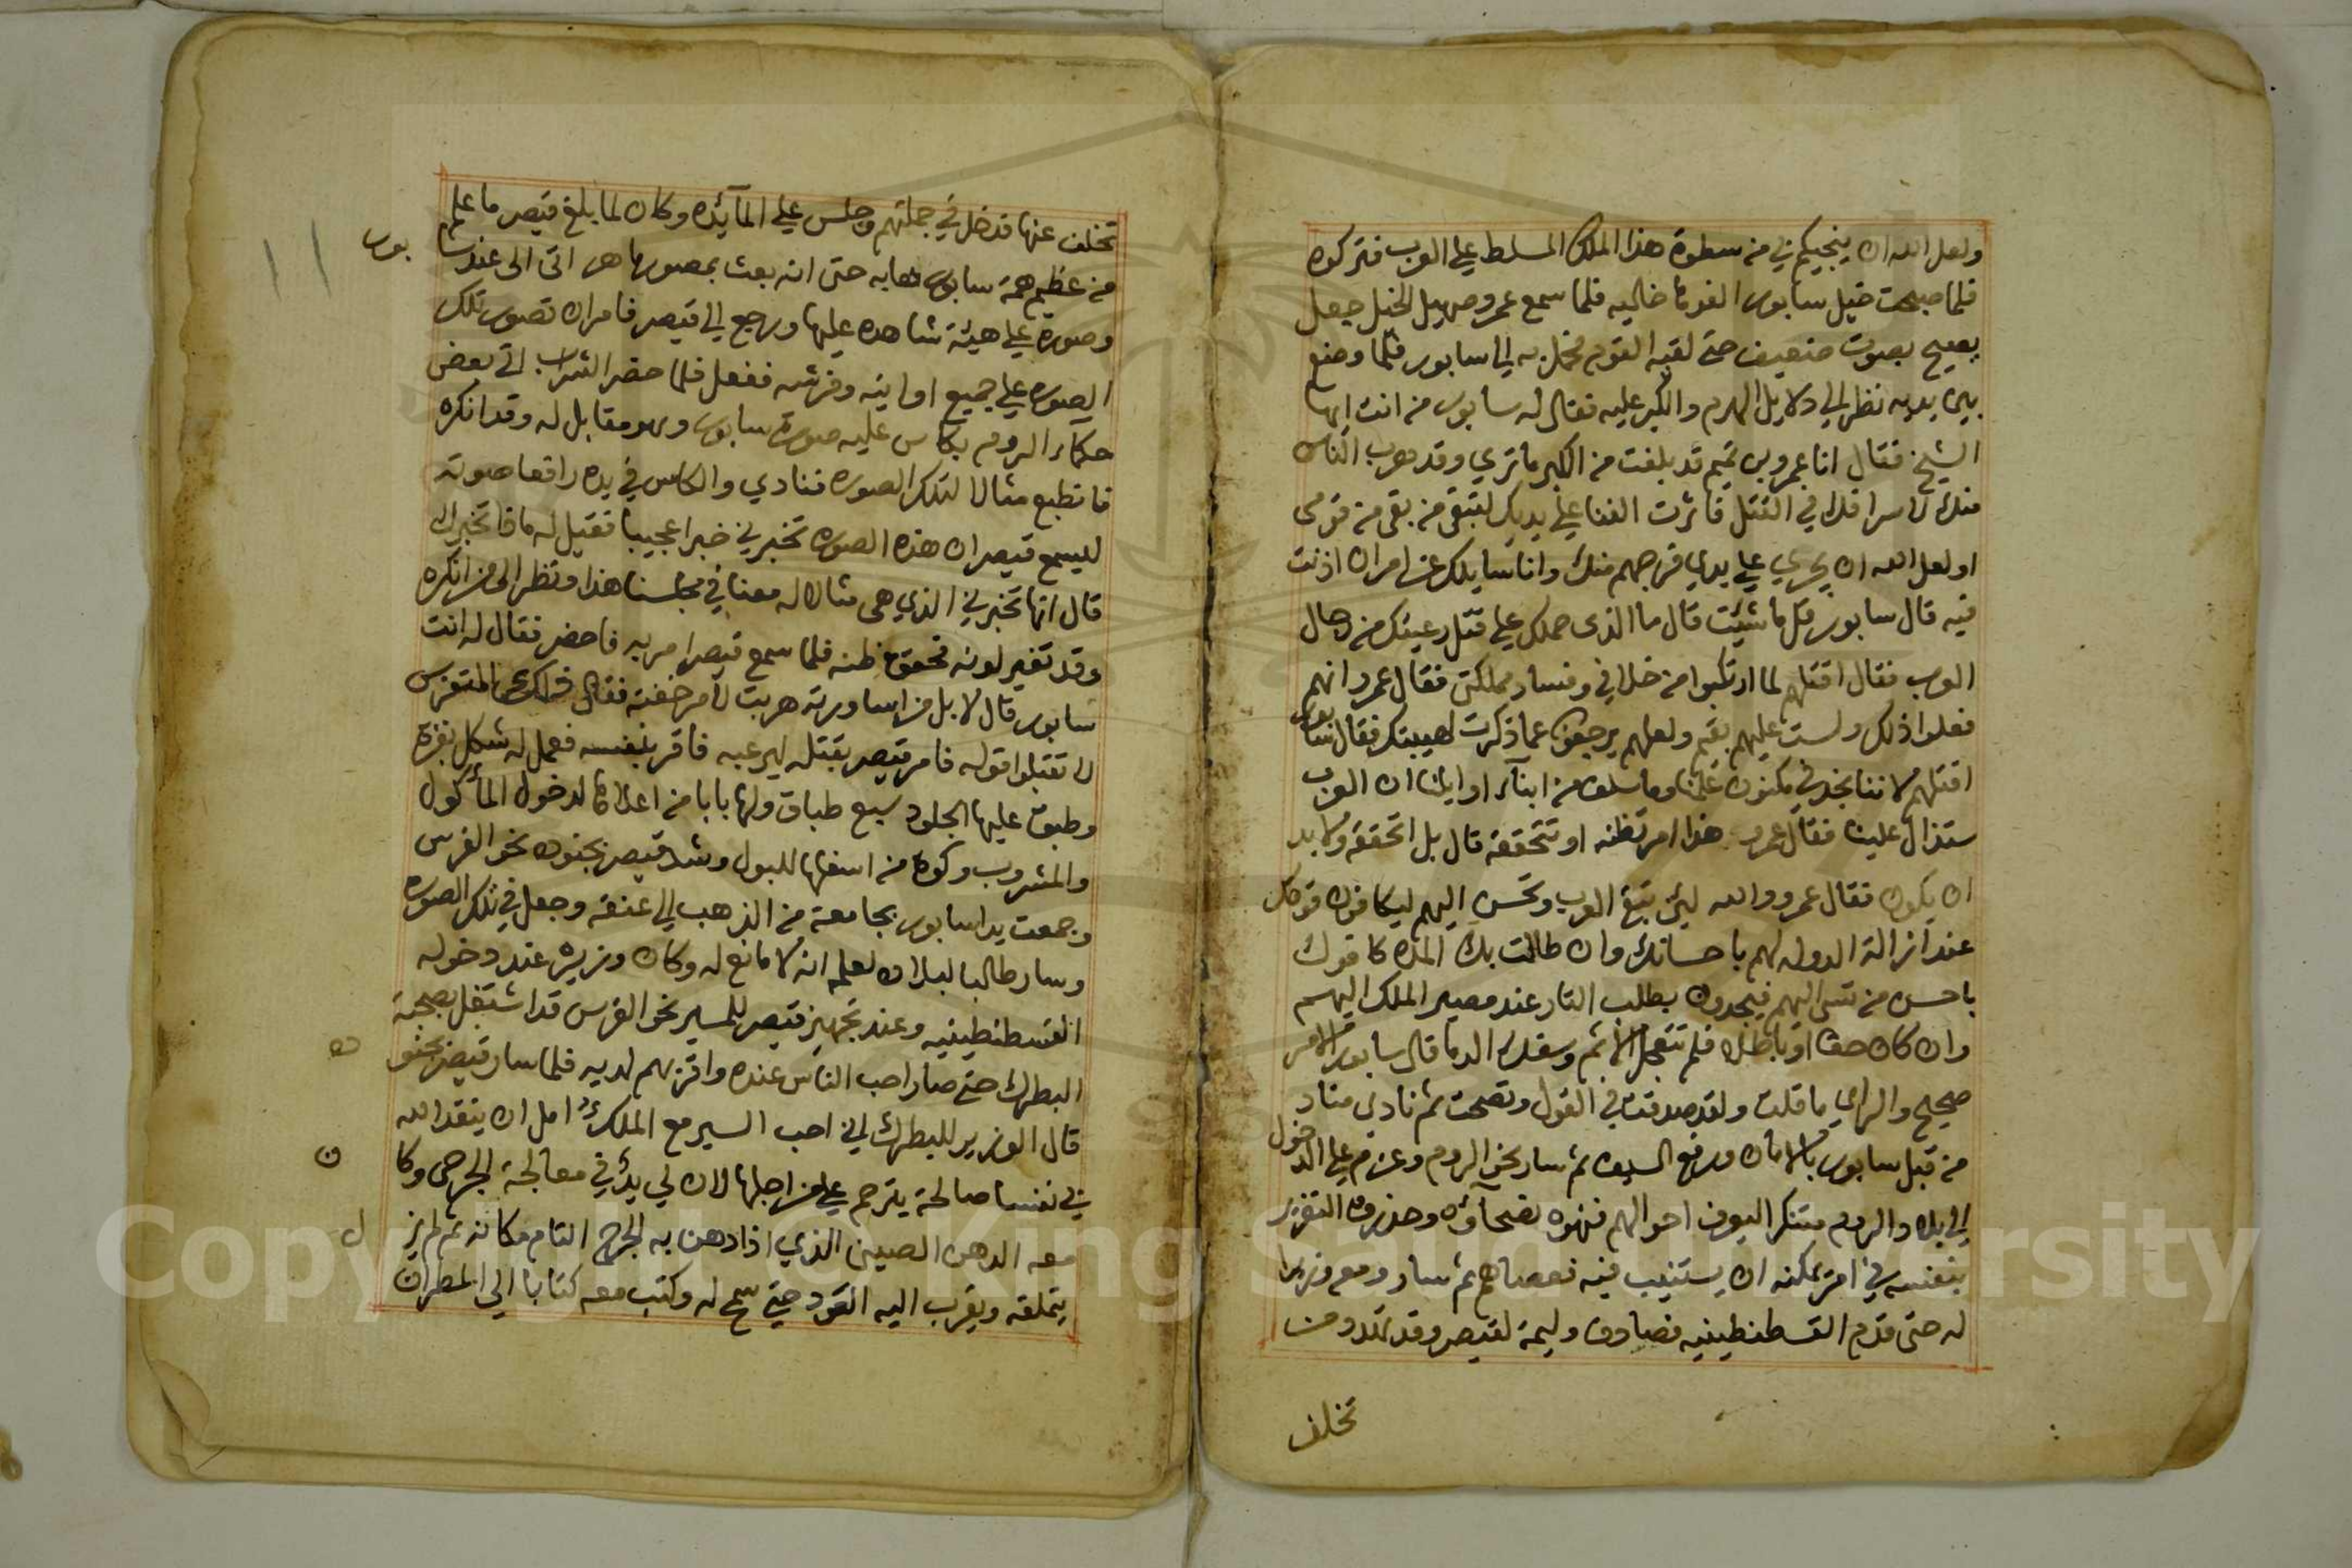 ولعل الله ان ينجيكم بي من سطوة هذا الملك المسلط على العرب فتركوه
فلما صبحت خيل سابور القوها خاليه فلما سمع عمرو صهيل الخيل جعل
يصيح بصوت ضعيف حتى لقيه القوم فحمل به الى سابور فلما وضع
بين يديه نظر الى دلايل الهرم والكبر عليه فقال له سابور من انت ايها
الشيخ فقال انا عمرو بن تميم قد بلغت من الكبر ما تري وقد هرب الناس
منك لاسرافك في القتل فاثرت الفنا على يديك لتبقى من بقى من قومى
اولعل الله ان يجري على يدي فرجهم منك وانا سايلك عن امر ان اذنت
فيه قال سابور قل ما شيئت قال ما الذى حملك على قتل رعيتك من رجال
العرب فقال اقتلهم لما ارتكبوا من خلافي وفساد مملكتى فقال عمرو انهم
فعلوا ذلك ولست عليهم بقيم ولعلهم يرجعون عما ذكرت لهيبتك فقال سابور
اقتلهم لاننا نجد في مكنون علمنا وما سلف من ابناء اوايلنا ان العرب
ستدال علينا فقال عمرو هذا امر تظنه او تتحققه قال بل اتحققه ولا بد
ان يكون فقال عمرو والله لين تبق العرب وتحسن اليهم ليكافون قومك
عند ازالة الدوله لهم باحسانك وان طالت بك المده كافوك
باحسن من اليهم فيجدون بطلب الثار عند مصير الملك اليهم
وان كان حقا او باطلا فلم تتعجل الاثم وسفك الدما قال سابور الامر
صحيح والراي ما قلت ولقد صدقت في القول ونصحت ثم نادى مناد
من قبل سابور بالامان ورفع السيف ثم سار نحو الروم وعزم على الدخول
الى بلاد الروم متنكرا ليعرف احوالهم فنهوه نصحاؤه وحذروه التغرير
بنفسه في امر يمكنه ان يستنيب فيه فعصاهم ثم سار ومع وزيرا
له حتى قدم القسطنطينيه فصادف وليمة لقيصر وقد تهدد من
تخلف
تخلف عنها فدخل في جملتهم وجلس على المآئده وكان لما بلغ قيصر ما علم
من عظيم همة سابور هابه حتى انه بعث بمصور ماهر اتى الى عند سابور
وصوره على هيئة شاهده عليها ورجع الى قيصر فامر ان تصور تلك
الصوره على جميع اوانيه وفرشه ففعل فلما حضر الشراب اتى بعض
حكماء الروم بكاس عليه صورة سابور وهو مقابل له وقد انكره
فانطبع مثالا لتلك الصوره فنادي والكاس في يده رافعا صوته
ليسمع قيصر ان هذه الصوره تخبرني خبرا عجيبا فقيل له ماذا تخبرك
قال انها تخبرني الذي هى مثال له معنا في مجلسنا هذا ونظر الى من انكره
وقد تغير لونه فحقق ظنه فلما سمع قيصر امر به فاحضر فقال له انت
سابور قال لا بل من اساورته هربت لامر خفته فقال المتفرس
لا تقبلوا قوله فامر قيصر بقتله ليرعبه فاقر بنفسه فعمل له شكل بقرة
وطبق عليها الجلود سبع طباق ولها بابا من اعلاها لدخول المأكول
والمشروب وكوة من اسفلها للبول وشد قيصر بجنوده نحو الفرس
وجمعت يدا سابور بجامعة من الذهب الى عنقه وجعل في تلك الصوره
وسار طالبا البلاد لعلمه انه لا مانع له وكان وزيره عند دخوله
القسطنطينيه وعند تجهيز قيصر للمسير نحو الفرس قد اشتغل بصحبة
البطرك حتى صار احب الناس عنده واقربهم لديه فلما سار قيصر بجنوده
قال الوزير للبطرك اني احب السير مع الملك امل ان ينقذ الله
بي نفسا صالحة يترحم على من اجلها لان لي يدٌ في معالجة الجرحى وكان
معه الدهن الصيني الذي اذا دهن به الجرح التام مكانه ثم لم يزل
يتملقه ويقرب اليه القود حتى سمح له وكتب معه كتابا الى المطران
Copyright © King Saud University